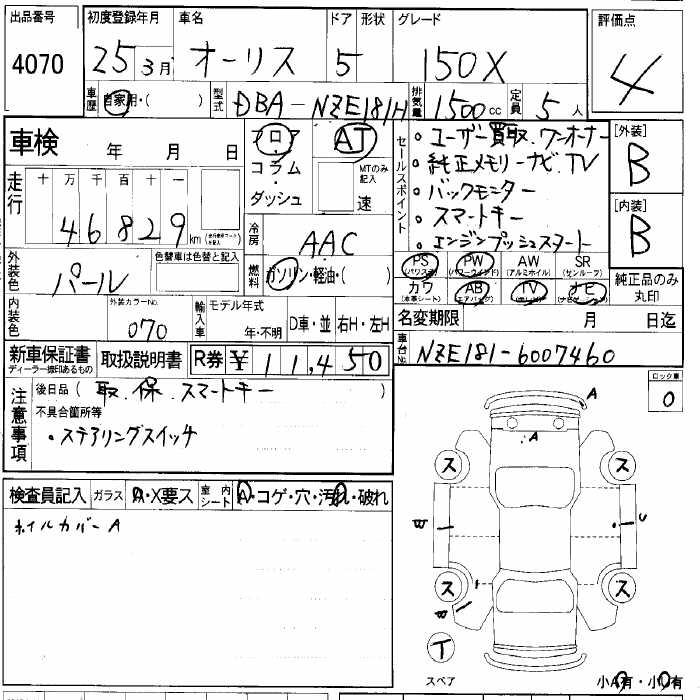 出品番号 初度登録年月 車名 ドア 形状 グレード 評価点
4070 25 3月 オーリス 5 150X 4
車歴 自家用・( ) 型式 DBA-NZE181H 排気量 1500cc 定員 5人
車検 年 月 日
フロア・コラム・ダッシュ AT MTのみ記入 速
セールスポイント
・ユーザー買取.ワンオーナー
・純正メモリーナビ.TV
・バックモニター
・スマートキー
・エンジンプッシュスタート
[外装] B
[内装] B
走行 十 万 千 百 十 一
46829 km
冷房 AAC
外装色 パール 色替車は色替と記入
燃料 ガソリン・軽油・( )
PS (パワステ) PW (パワーウインド) AW (アルミホイル) SR (サンルーフ)
カワ (本革シート) AB (エアバッグ) TV (テレビ) ナビ
純正品のみ丸印
内装色 外装カラーNo. 070 輸入車 モデル年式 年・不明 D車・並 右H・左H
名変期限 月 日迄
新車保証書 ディーラー捺印あるもの 取扱説明書 R券 ¥11,450
車台No. NZE181-6007460
注意事項
後日品( 取.保.スマートキー )
不具合箇所等
・ステアリングスイッチ
ロック車 0
検査員記入 ガラス A・X要ス 室内シート A・コゲ・穴・汚れ・破れ
ホイルカバーA
A
A
ス ス
W U
ス ス
W
T
スペア
小A有・小U有